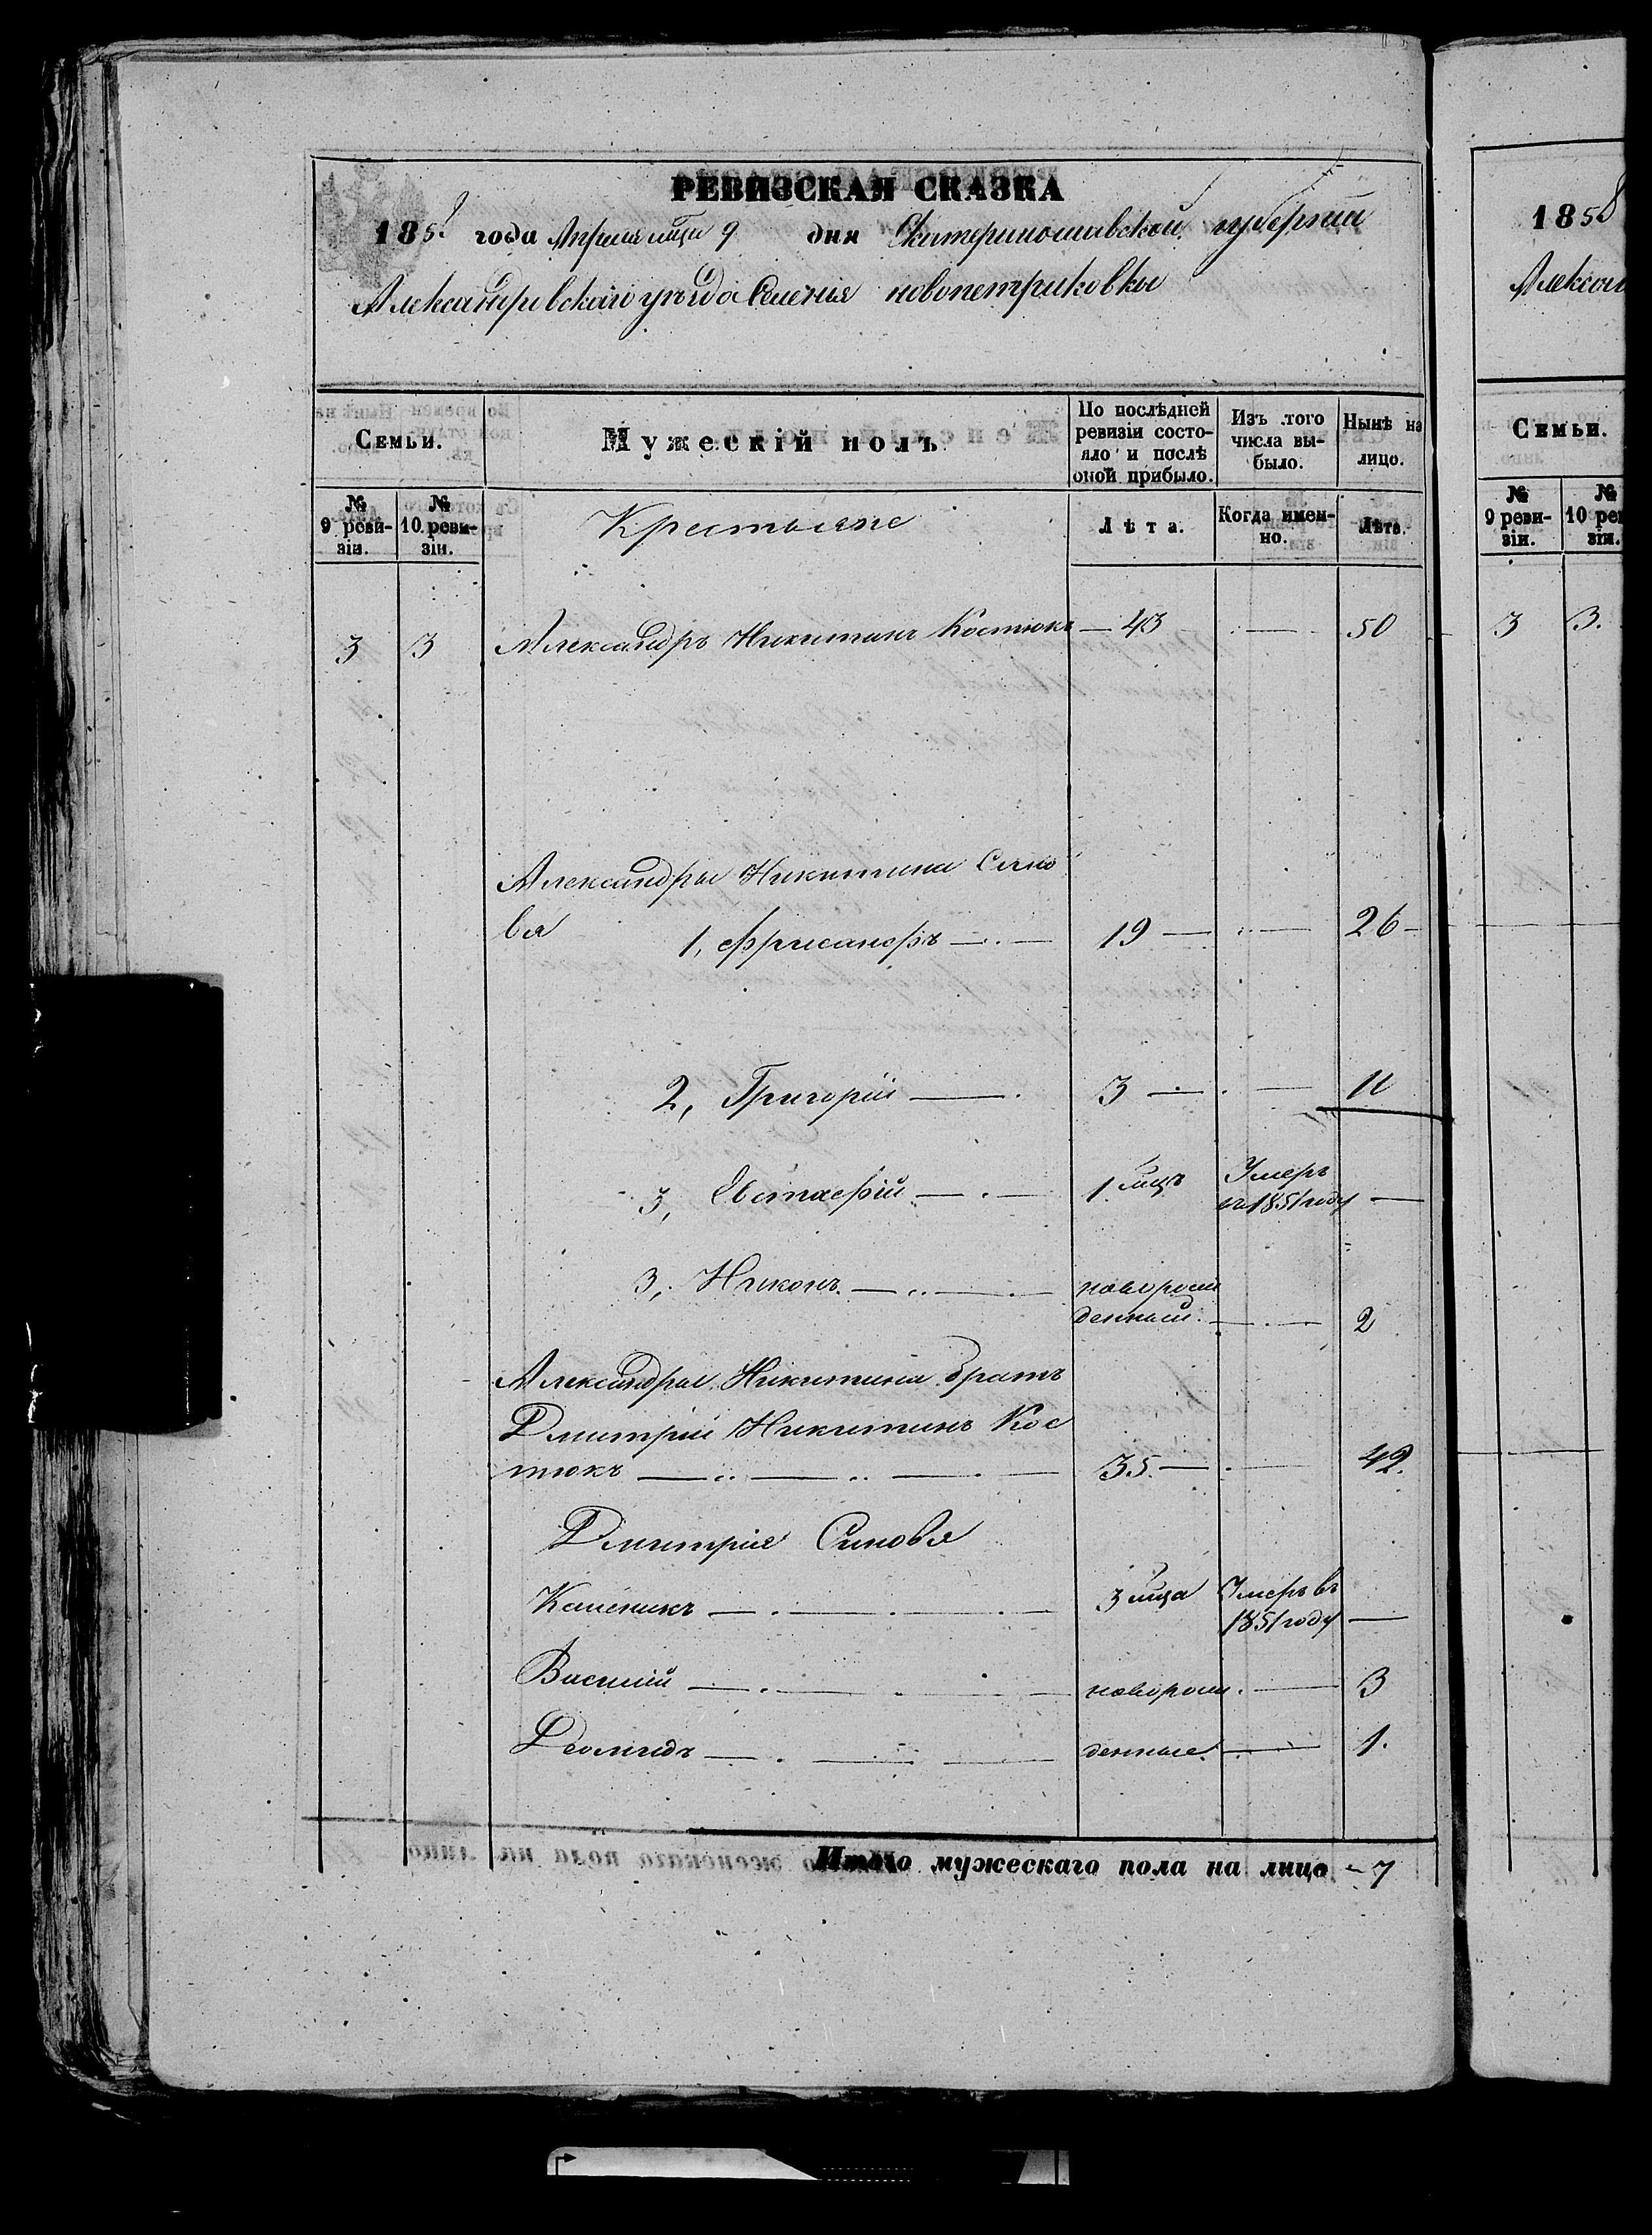 РЕВИЗСКАЯ СКАЗКА
1858 года Апреля мца 9 дня Екатеринославской губернии
Александровского уезда Селения новопетриковки
Семьи.
Мужескій полъ
По послѣдней ревизіи состо-
яло и послѣ
оной прибыло.
Изъ того
числа вы-
было.
Нынѣ на
лицо.
№
9 реви-
зіи.
№
10 реви-
зіи.
Крестьяне
Лѣта.
Когда имен-
но.
Лѣта.
3 3 Александръ Никитинъ Костюкъ — 43 — 50
Александра Никитина Сино
вя 1, Фрисанфъ — 19 — — 26
2, Григорій — 3 — — 11
3, Евстафій — 1. мцъ Умеръ
въ 1851 году —
3, Никонъ — новорож
денный. — 2
Александра Никитина братъ
Дмитрій Никитинъ Кос
тюкъ — 35. — — 42.
Дмитрія Синовя
3 мца Умеръ въ
1851 году —
Василій — новорож — 3
Деомидъ — денные. — 1.
Итого мужескаго пола на лицо - 7
1858
Алексан
Семьи.
№
9 реви-
зіи.
№
10 реви
зіи.
3 3.